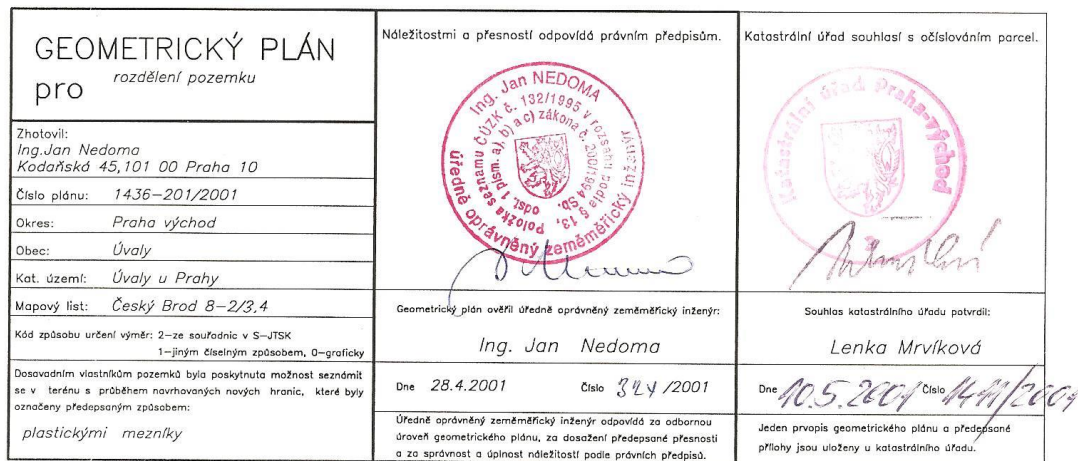 GEOMETRICKÝ PLÁN
pro rozdělení pozemku
Zhotovil:
Ing.Jan Nedoma
Kodaňská 45,101 00 Praha 10
Číslo plánu: 1436-201/2001
Okres: Praha východ
Obec: Úvaly
Kat. území: Úvaly u Prahy
Mapový list: Český Brod 8-2/3,4
Kód způsobu určení výměr: 2-ze souřadnic v S-JTSK
1-jiným číselným způsobem, 0-graficky
Dosavadním vlastníkům pozemků byla poskytnuta možnost seznámit
se v terénu s průběhem navrhovaných nových hranic, které byly
označeny předepsaným způsobem:
plastickými mezníky
Náležitostmi a přesností odpovídá právním předpisům.
Ing. Jan NEDOMA
Položka seznamu ČÚZK č. 132/1995 v rozsahu
odst. 1 písm. a), b) a c) zákona č. 200/1994 Sb.
podle § 13,
úředně oprávněný zeměměřický inženýr
Geometrický plán ověřil úředně oprávněný zeměměřický inženýr:
Ing. Jan Nedoma
Dne 28.4.2001 Číslo 324/2001
Úředně oprávněný zeměměřický inženýr odpovídá za odbornou
úroveň geometrického plánu, za dosažení předepsané přesnosti
a za správnost a úplnost náležitostí podle právních předpisů.
Katastrální úřad souhlasí s očíslováním parcel.
Katastrální úřad Praha-východ
Souhlas katastrálního úřadu potvrdil:
Lenka Mrvíková
Dne 10.5.2001 Číslo /2001
Jeden prvopis geometrického plánu a předepsané
přílohy jsou uloženy u katastrálního úřadu.